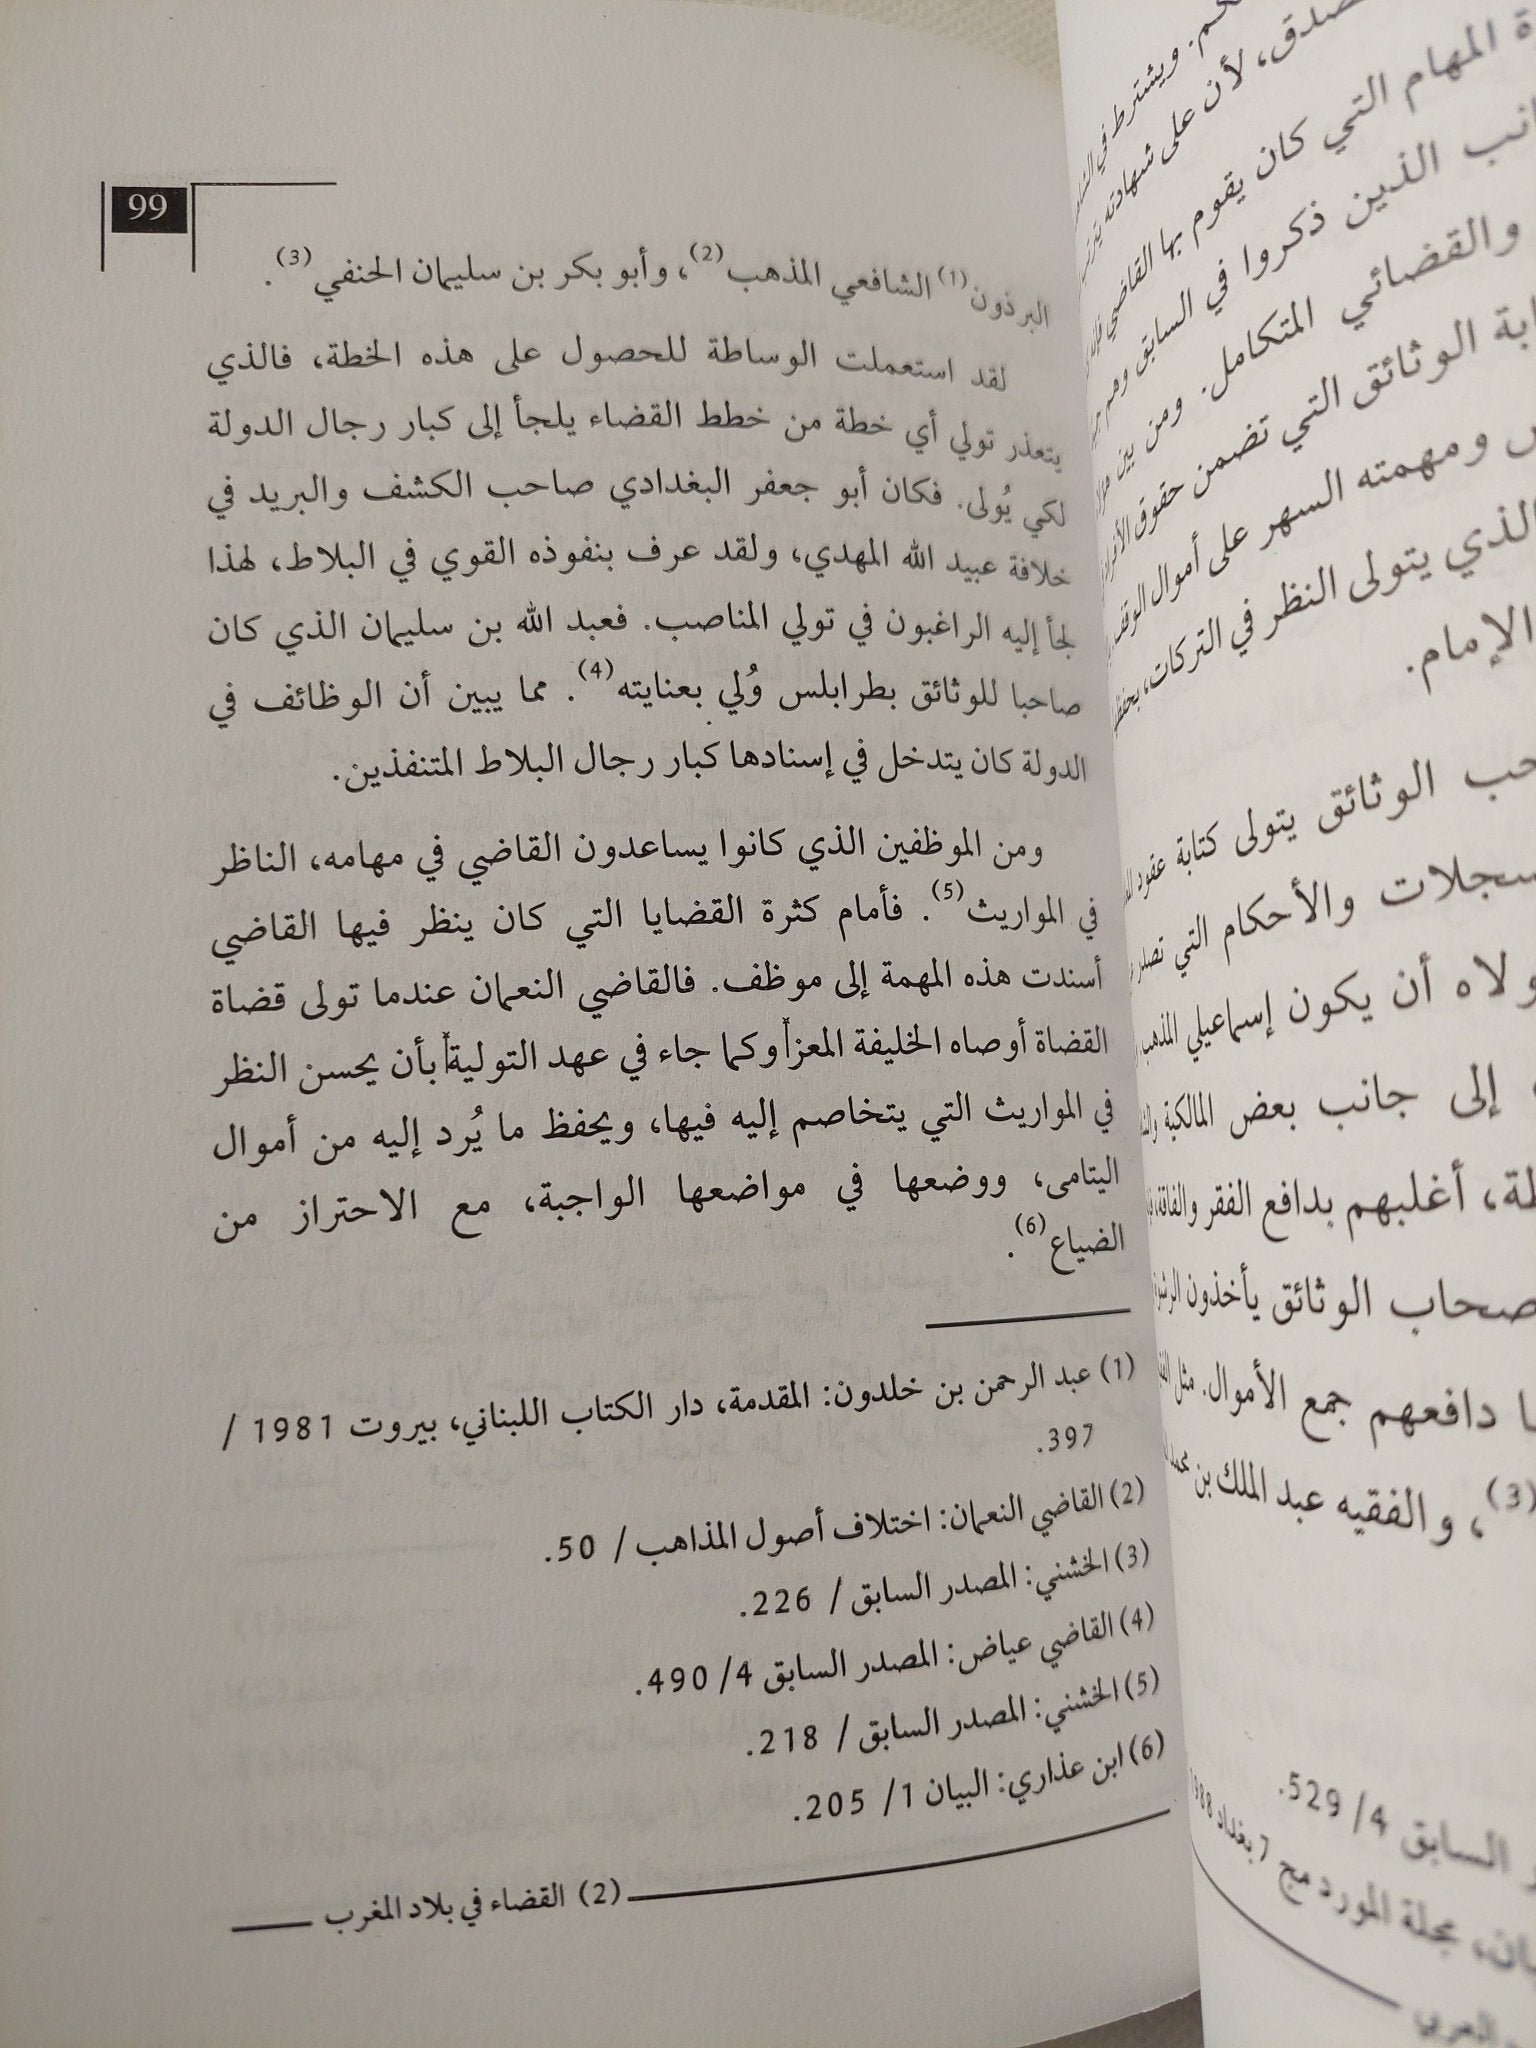 99
البرذون(1) الشافعي المذهب(2)، وأبو بكر بن سليمان الحنفي(3).
لقد استعملت الوساطة للحصول على هذه الخطة، فالذي
يتعذر تولي أي خطة من خطط القضاء يلجأ إلى كبار رجال الدولة
لكي يُولى. فكان أبو جعفر البغدادي صاحب الكشف والبريد في
خلافة عبيد الله المهدي، ولقد عرف بنفوذه القوي في البلاط، لهذا
لجأ إليه الراغبون في تولي المناصب. فعبد الله بن سليمان الذي كان
صاحبا للوثائق بطرابلس وُلي بعنايته(4). مما يبين أن الوظائف في
الدولة كان يتدخل في إسنادها كبار رجال البلاط المتنفذين.
ومن الموظفين الذي كانوا يساعدون القاضي في مهامه، الناظر
في المواريث(5). فأمام كثرة القضايا التي كان ينظر فيها القاضي
أسندت هذه المهمة إلى موظف. فالقاضي النعمان عندما تولى قضاة
القضاة أوصاه الخليفة المعزأ وكما جاء في عهد التوليةأ بأن يحسن النظر
في المواريث التي يتخاصم إليه فيها، ويحفظ ما يُرد إليه من أموال
اليتامى، ووضعها في مواضعها الواجبة، مع الاحتراز من
الضياع(6).
(1) عبد الرحمن بن خلدون: المقدمة، دار الكتاب اللبناني، بيروت 1981 /
397.
(2) القاضي النعمان: اختلاف أصول المذاهب / 50.
(3) الخشني: المصدر السابق / 226.
(4) القاضي عياض: المصدر السابق 4/ 490.
(5) الخشني: المصدر السابق / 218.
(6) ابن عذاري: البيان 1/ 205.
(2) القضاء في بلاد المغرب
ويشترط في
صدق، لأن على شهادته
المهام التي كان يقوم بها القاضي
الذين ذكروا في السابق وهم
والقضائي المتكامل. ومن بين
الوثائق التي تضمن حقوق
ومهمته السهر على أموال الوقف
الذي يتولى النظر في التركات،
الإمام.
الوثائق يتولى كتابة عقود
والأحكام التي تصدر
أن يكون إسماعيلي المذهب
إلى جانب بعض المالكية
أغلبهم بدافع الفقر والفاقة،
الوثائق يأخذون
دافعهم جمع الأموال. مثل
(3)، والفقيه عبد الملك بن
السابق 4/ 529.
مجلة المورد مج 7 بغداد
العربي